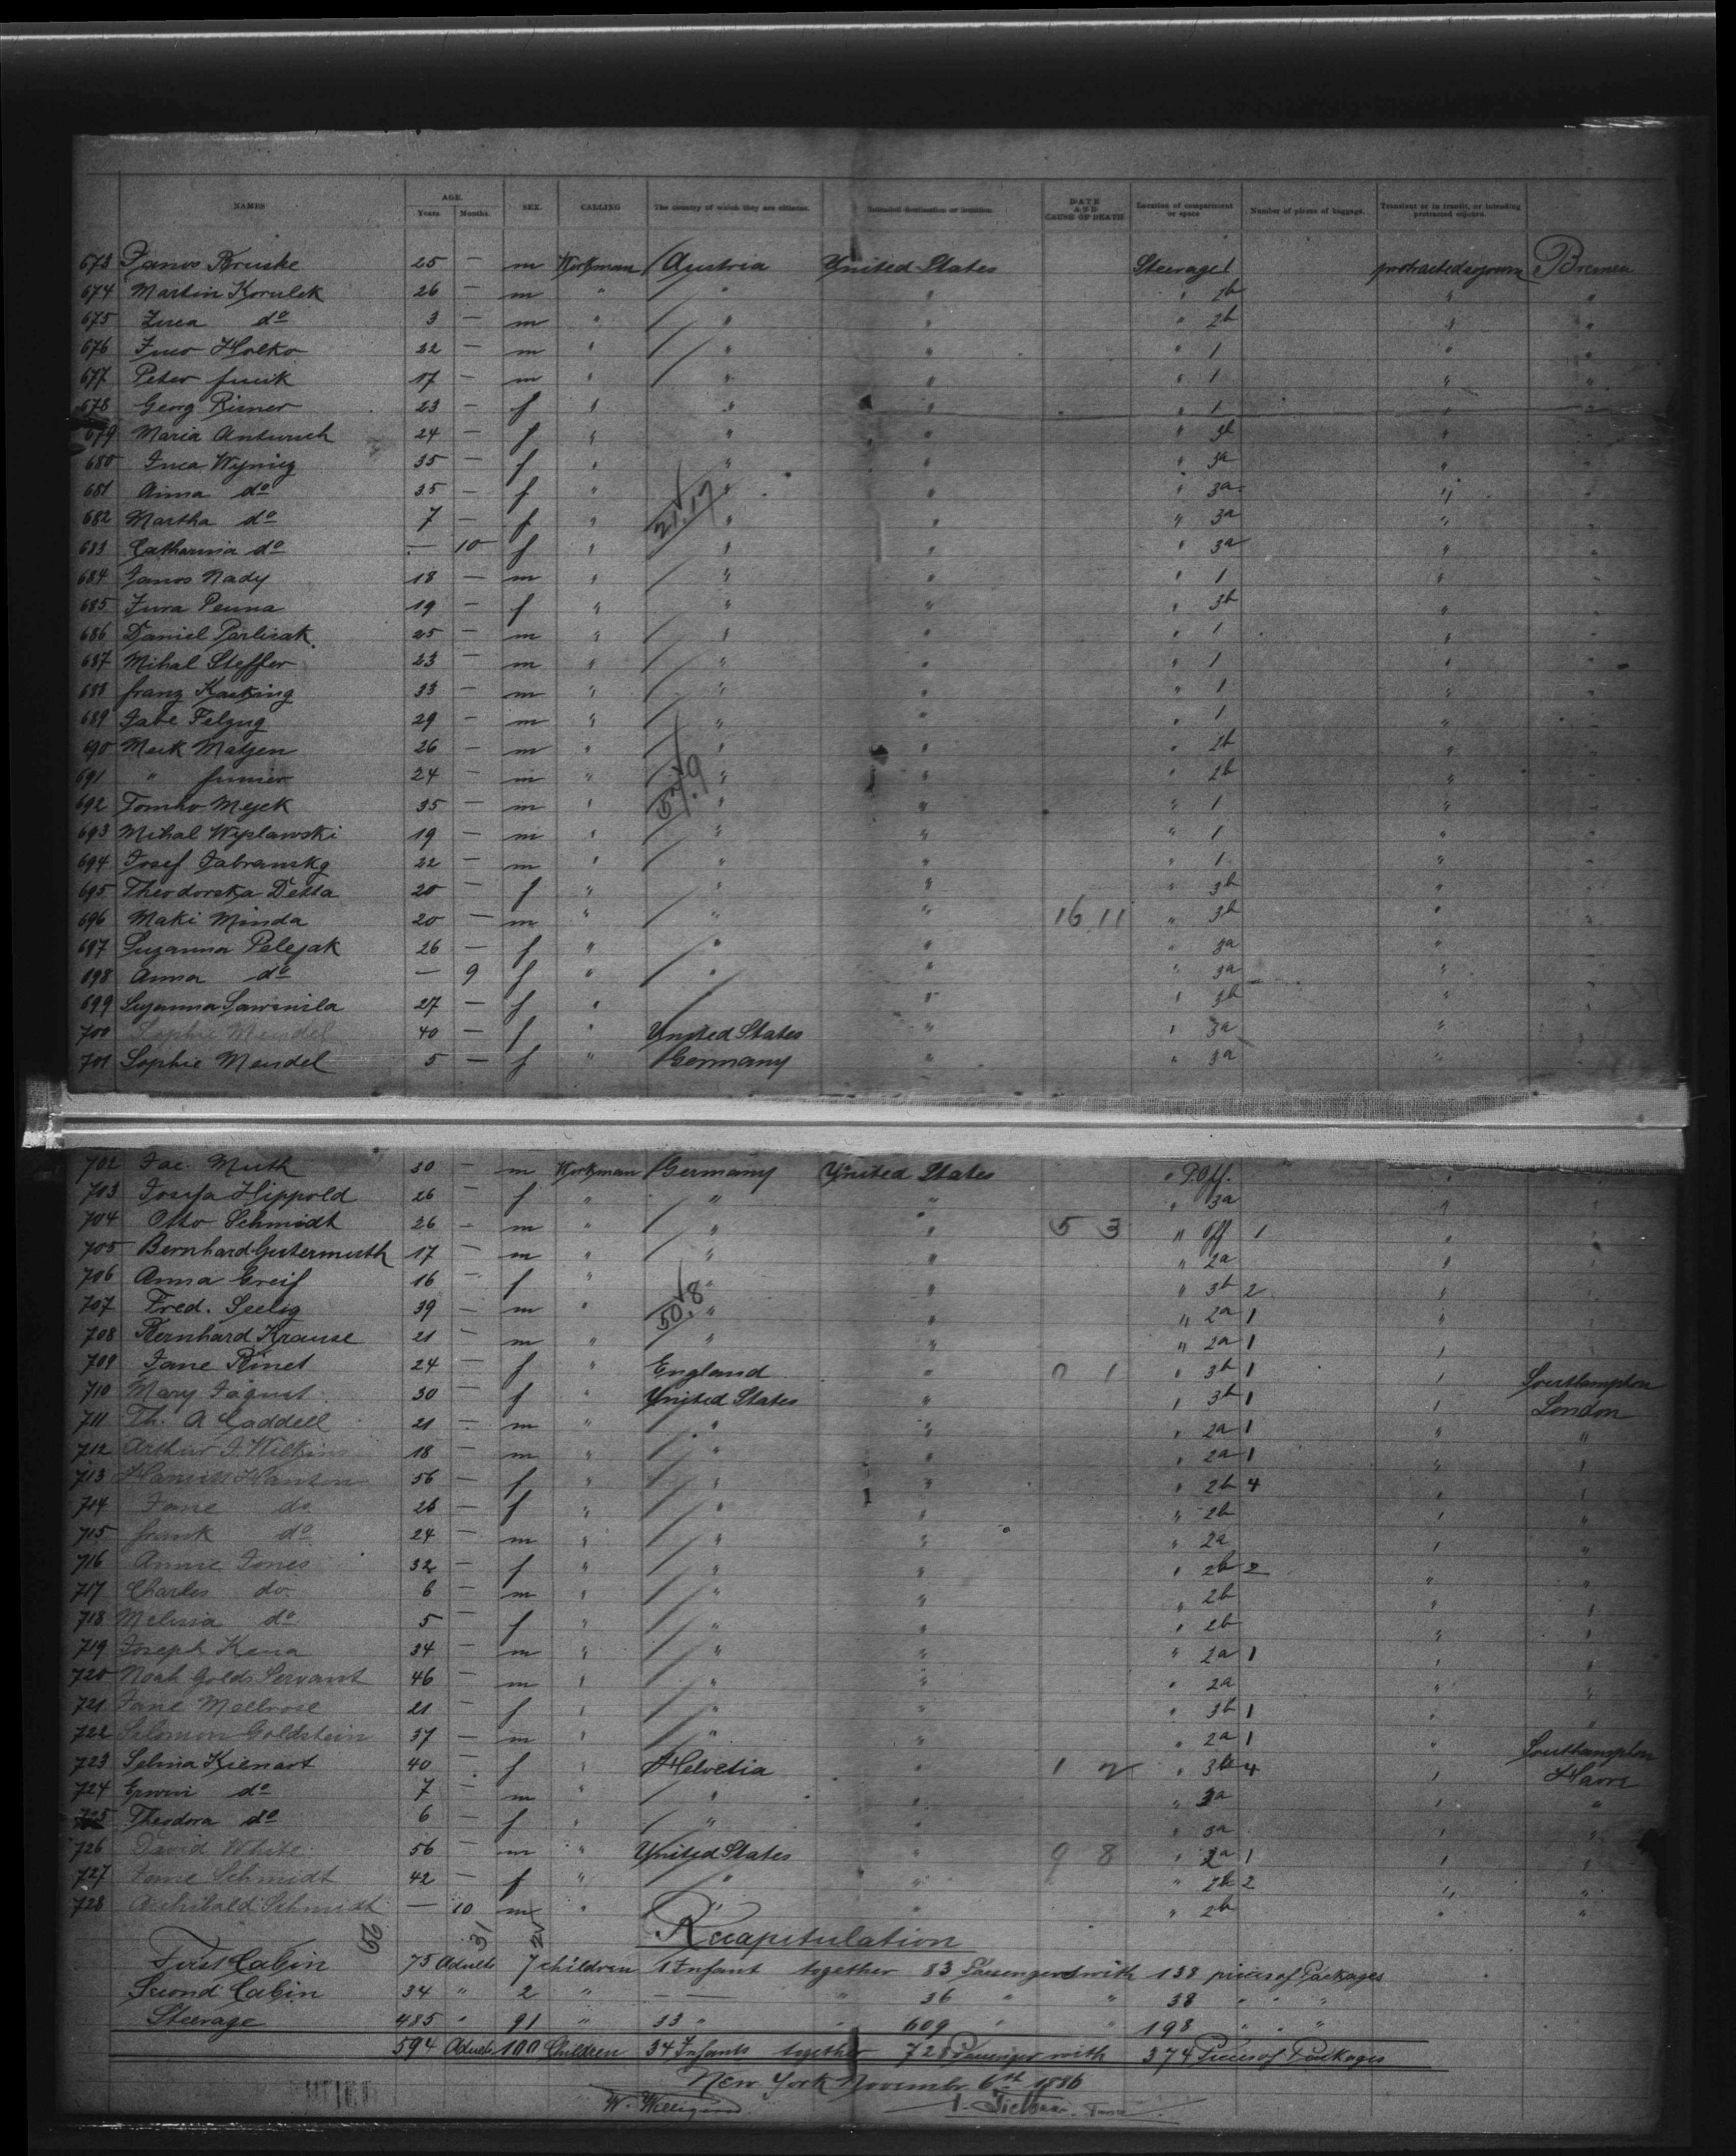 NAMES AGE. Years. Months. SEX. CALLING The country of which they are citizens. Intended destination or location DATE AND CAUSE OF DEATH Location of compartment or space Number of pieces of baggage. Transient or in transit, or intending protracted sojourn.
673 Janos Kruske 25 — m Workman Austria United States Steerage 1 protracted sojourn Bremen
674 Martin Korulek 26 — m " " " " 2b " "
675 Zuca do 3 — m " " " " 2b " "
676 Juro Holko 32 — m " " " " 1 " "
677 Peter 17 — m " " " " 1 " "
678 Georg Rimer 23 — f " " " " 1 " "
679 Maria Antusch 24 — f " " " " 3b " "
680 35 — f " " " " 3a " "
681 Anna do 35 — f " " " " 3a " "
682 Martha do 7 — f " " " " 3a " "
683 Catharina do — 10 f " " " " 3a " "
684 Janos Nady 18 — m " " " " 1 " "
685 Jura Penna 19 — f " " " " 3b " "
686 Daniel Parlicak 25 — m " " " " 1 " "
687 Mihal Steffer 23 — m " " " " 1 " "
688 Franz 33 — m " " " " 1 " "
689 29 — m " " " " 1 " "
690 Meik Matjen 26 — m " " " " 2b " "
691 " Junior 24 — m " " " " 2b " "
692 Tomko Mejek 35 — m " " " " 1 " "
693 Mihal Wyslawski 19 — m " " " " 1 " "
694 Josef Jabransky 22 — m " " " " 1 " "
695 Theodorska Detta 20 — f " " " " 3b " "
696 Maki Minda 20 — m " " " 16 11 " 3b " "
697 Suzanna Pelejak 26 — f " " " " 3a " "
698 Anna do — 9 f " " " " 3a " "
699 Suzanna 27 — f " " " 3b " "
700 Sophie Mendel 40 — f " United States " " 3a " "
701 Sophie Mendel 5 — f " Germany " " 3a " "
702 Jac. Muth 30 — m Workman Germany United States " P.Off. " "
703 Josefa Hippold 26 — f " " " " 3a " "
704 Otto Schmidt 26 — m " " " 5 3 " Off 1 " "
705 Bernhard Gutermuth 17 — m " " " " 2a " "
706 Anna Greif 16 — f " " " " 3b 2 " "
707 Fred. Seelig 39 — m " " " " 2a 1 " "
708 Bernhard Krause 21 — m " " " " 2a 1 " "
709 Jane Rinet 24 — f " England " 0 1 " 3b 1 " Southampton
710 Mary 30 — f " United States " " 3b 1 " London
711 Th. A Caddell 21 — m " " " " 2a 1 " "
712 Arthur J. Wilkins 18 — m " " " " 2a 1 " "
713 56 — f " " " " 2b 4 " "
714 Jane do 26 — f " " " " 2b " "
715 Frank do 24 — m " " " " 2a " "
716 Annie Jones 32 — f " " " " 2b 2 " "
717 Charles do 6 — m " " " " 2b " "
718 Melissa do 5 — f " " " " 2b " "
719 Joseph Kena 34 — m " " " " 2a 1 " "
720 Noah Golds Servant 46 — m " " " " 2a " "
721 Jane Mellrose 21 — f " " " " 3b 1 " "
722 Salomon Goldstein 37 — m " " " " 2a 1 " Southampton
723 Selma Kienart 40 — f " Helvetia " 1 2 " 3b 4 " Havre
724 Erwin do 7 — m " " " " 3a " "
725 Theodora do 6 — f " " " " 3a " "
726 David White 56 — m " United States " 9 8 " 2a 1 " "
727 Jane Schmidt 42 — f " " " " 2b 2 " "
728 Archibald Schmidt — 10 m " " " " 2b " "
Recapitulation
First Cabin 75 Adults 7 children 1 Infant together 83 Passengers with 138 pieces of Packages
Second Cabin 34 " 2 " — — " 36 " " 38 " " "
Steerage 485 " 91 " 33 " " 609 " " 198 " " "
594 Adults 100 Children 34 Infants together 728 Passenger with 374 Pieces of Packages
New York November 6th 1886
W. Willigerod